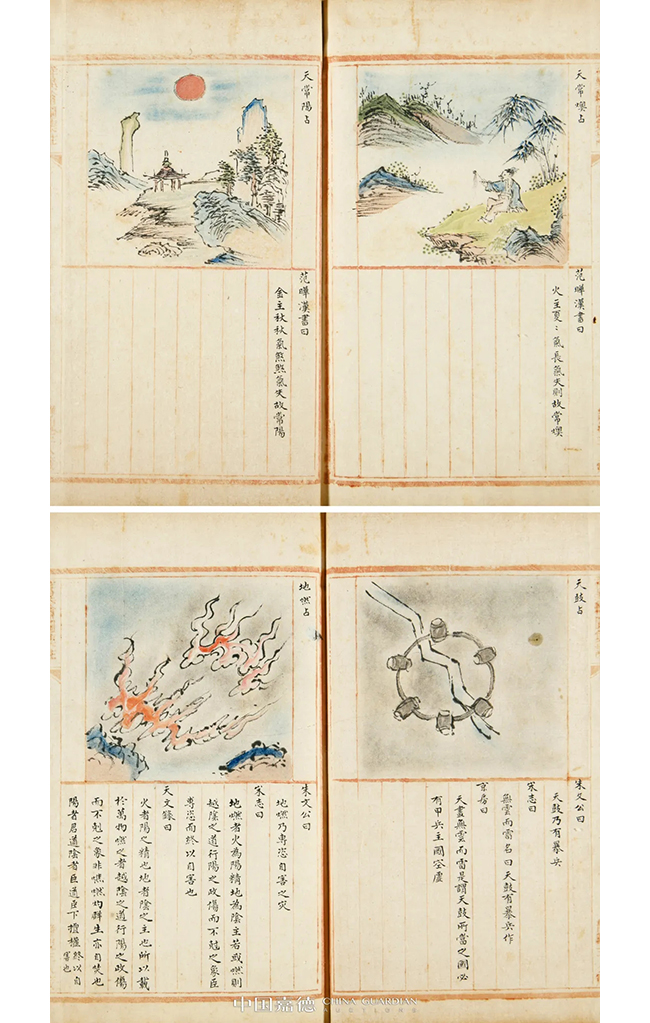 天常燠占
范曄漢書曰
火主夏〻氣長氣失則故常燠
天常陽占
范曄漢書曰
金主秋秋氣煞煞氣失故常陽
天鼓占
朱文公曰
天鼓乃有暴兵
宋志曰
無雲而雷名曰天鼓有暴兵作
京房曰
天晝無雲而雷是謂天鼓所當之國必
有甲兵主國空虛
地燃占
朱文公曰
地燃乃專恣自害之灾
宋志曰
地燃者火為陽精地為陰主若或燃則
越陰之道行陽之政傷而不尅之象臣
專恣而終以自害也
天文錄曰
火者陽之精也地者陰之主也所以載
於萬物燃之者越陰之道行陽之政傷
而不尅之象非燋燃灼群生亦自焚也
陽者君道陰者臣道臣下擅權終以自害也
中国嘉德 CHINA GUARDIAN
AUCTIONS